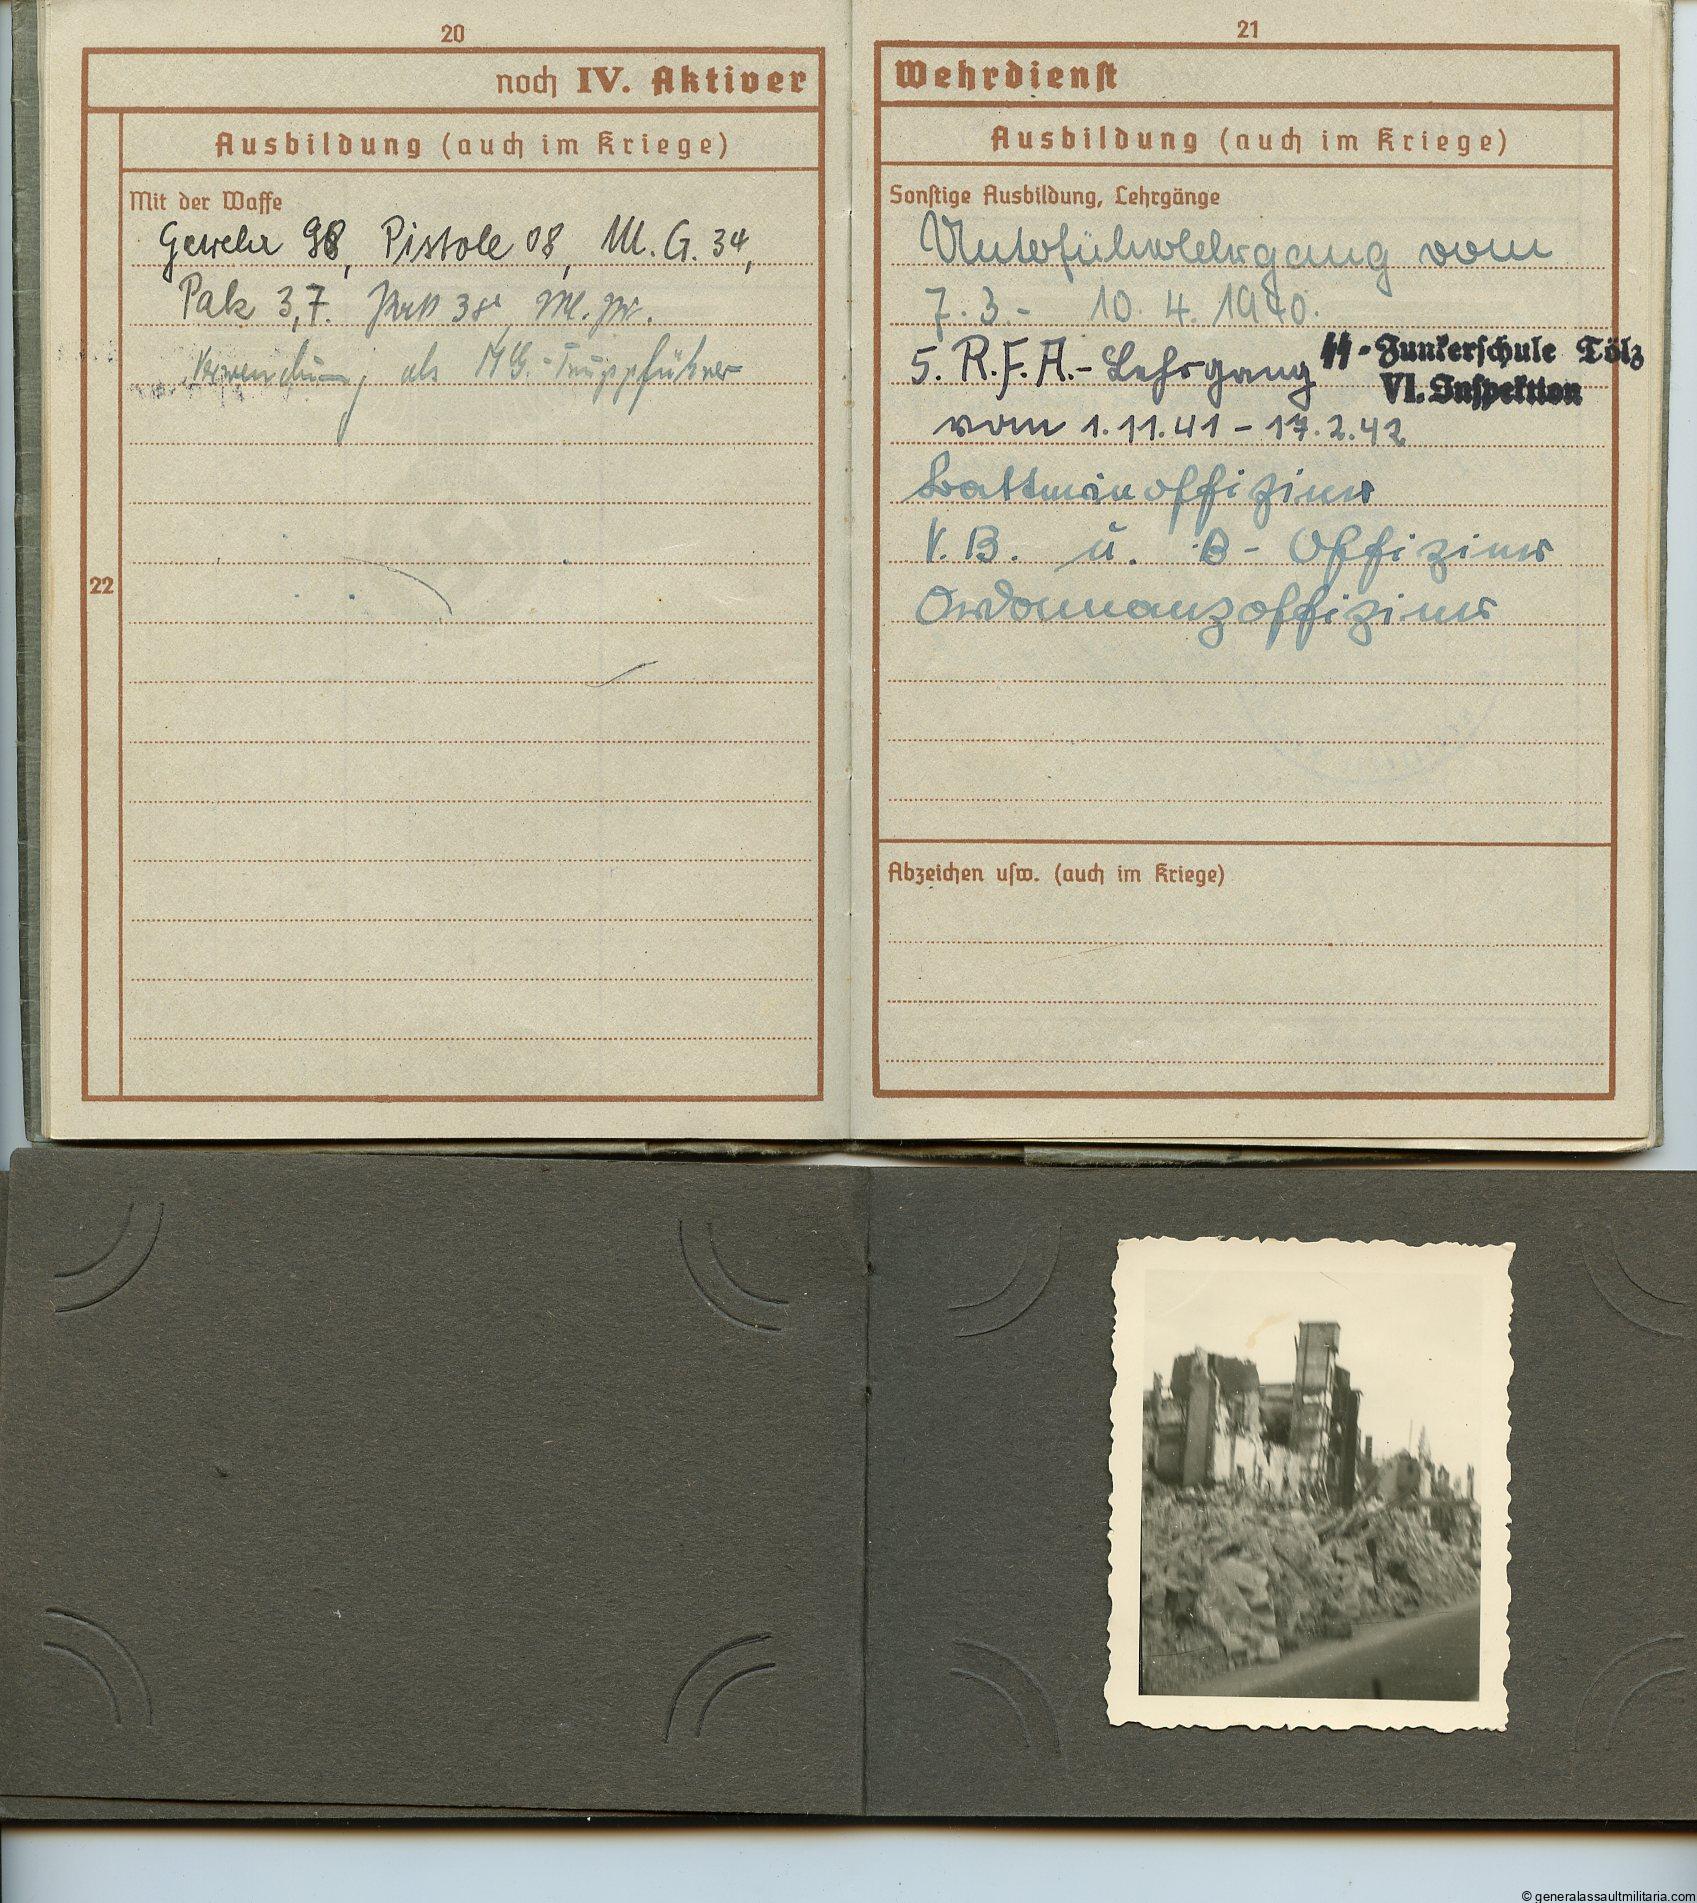 20
noch IV. Aktiver
Ausbildung (auch im Kriege)
Mit der Waffe
Gewehr 98, Pistole 08, M.G. 34,
Pak 3,7. 38, M. W.
Verwendung als MG.-Truppführer
22
21
Wehrdienst
Ausbildung (auch im Kriege)
Sonstige Ausbildung, Lehrgänge
Unterführerlehrgang vom
7.3.- 10.4.1940.
5. R.F.A.-Lehrgang
SS-Junkerschule Tölz
VI. Inspektion
vom 1.11.41 - 17.2.42
Battrieoffizier
V.B. u. B-Offizier
Ordonnanzoffizier
Abzeichen usw. (auch im Kriege)
© generalassaultmilitaria.com